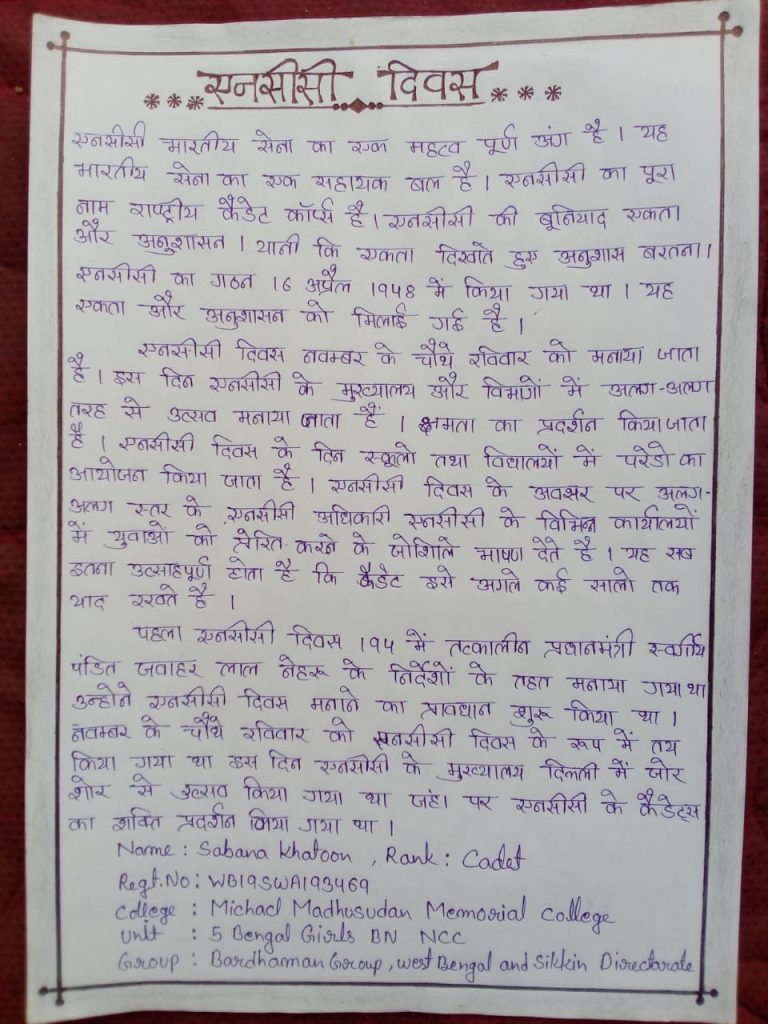 एनसीसी दिवस
एनसीसी भारतीय सेना का एक महत्व पूर्ण अंग है । यह
भारतीय सेना का एक सहायक बल है । एनसीसी का पूरा
नाम राष्ट्रीय कैडेट कॉर्प्स है । एनसीसी की बूनियाद एकता
और अनुशासन । यानी कि एकता दिखाते हुए अनुशास बरतना ।
एनसीसी का गठन 16 अप्रैल 1948 में किया गया था । यह
एकता और अनुशासन को मिलाई गई है ।
एनसीसी दिवस नवम्बर के चौथे रविवार को मनाया जाता
है । इस दिन एनसीसी के मुख्यालय और विभागों में अलग-अलग
तरह से उत्सव मनाया जाता हैं । क्षमता का प्रदर्शन किया जाता
है । एनसीसी दिवस के दिन स्कूलो तथा विद्यालयों में परेडो का
आयोजन किया जाता है । एनसीसी दिवस के अवसर पर अलग-
अलग स्तर के एनसीसी अधिकारी एनसीसी के विभिन्न कार्यालयों
में युवाओं को प्रेरित करने के जोशिले भाषण देते है । यह सब
इतना उत्साहपूर्ण होता है कि कैडेट इसे अगले कई सालो तक
याद रखते है ।
पहला एनसीसी दिवस 194 में तत्कालीन प्रधानमंत्री स्वर्गीय
पंडित जवाहर लाल नेहरू के निर्देशों के तहत मनाया गया था
उन्होने एनसीसी दिवस मनाने का प्रावधान शुरू किया था ।
नवम्बर के चौथे रविवार को एनसीसी दिवस के रूप में तय
किया गया था इस दिन एनसीसी के मुख्यालय दिल्ली में जोर
शोर से उत्सव किया गया था जहां पर एनसीसी के कैडेट्स
का शक्ति प्रदर्शन किया गया था ।
Name : Sabana Khatoon , Rank : Cadet
Regt.No : WB19SWA193469
College : Michael Madhusudan Memorial College
Unit : 5 Bengal Girls BN NCC
Group : Bardhaman Group, West Bengal and Sikkin Directarate